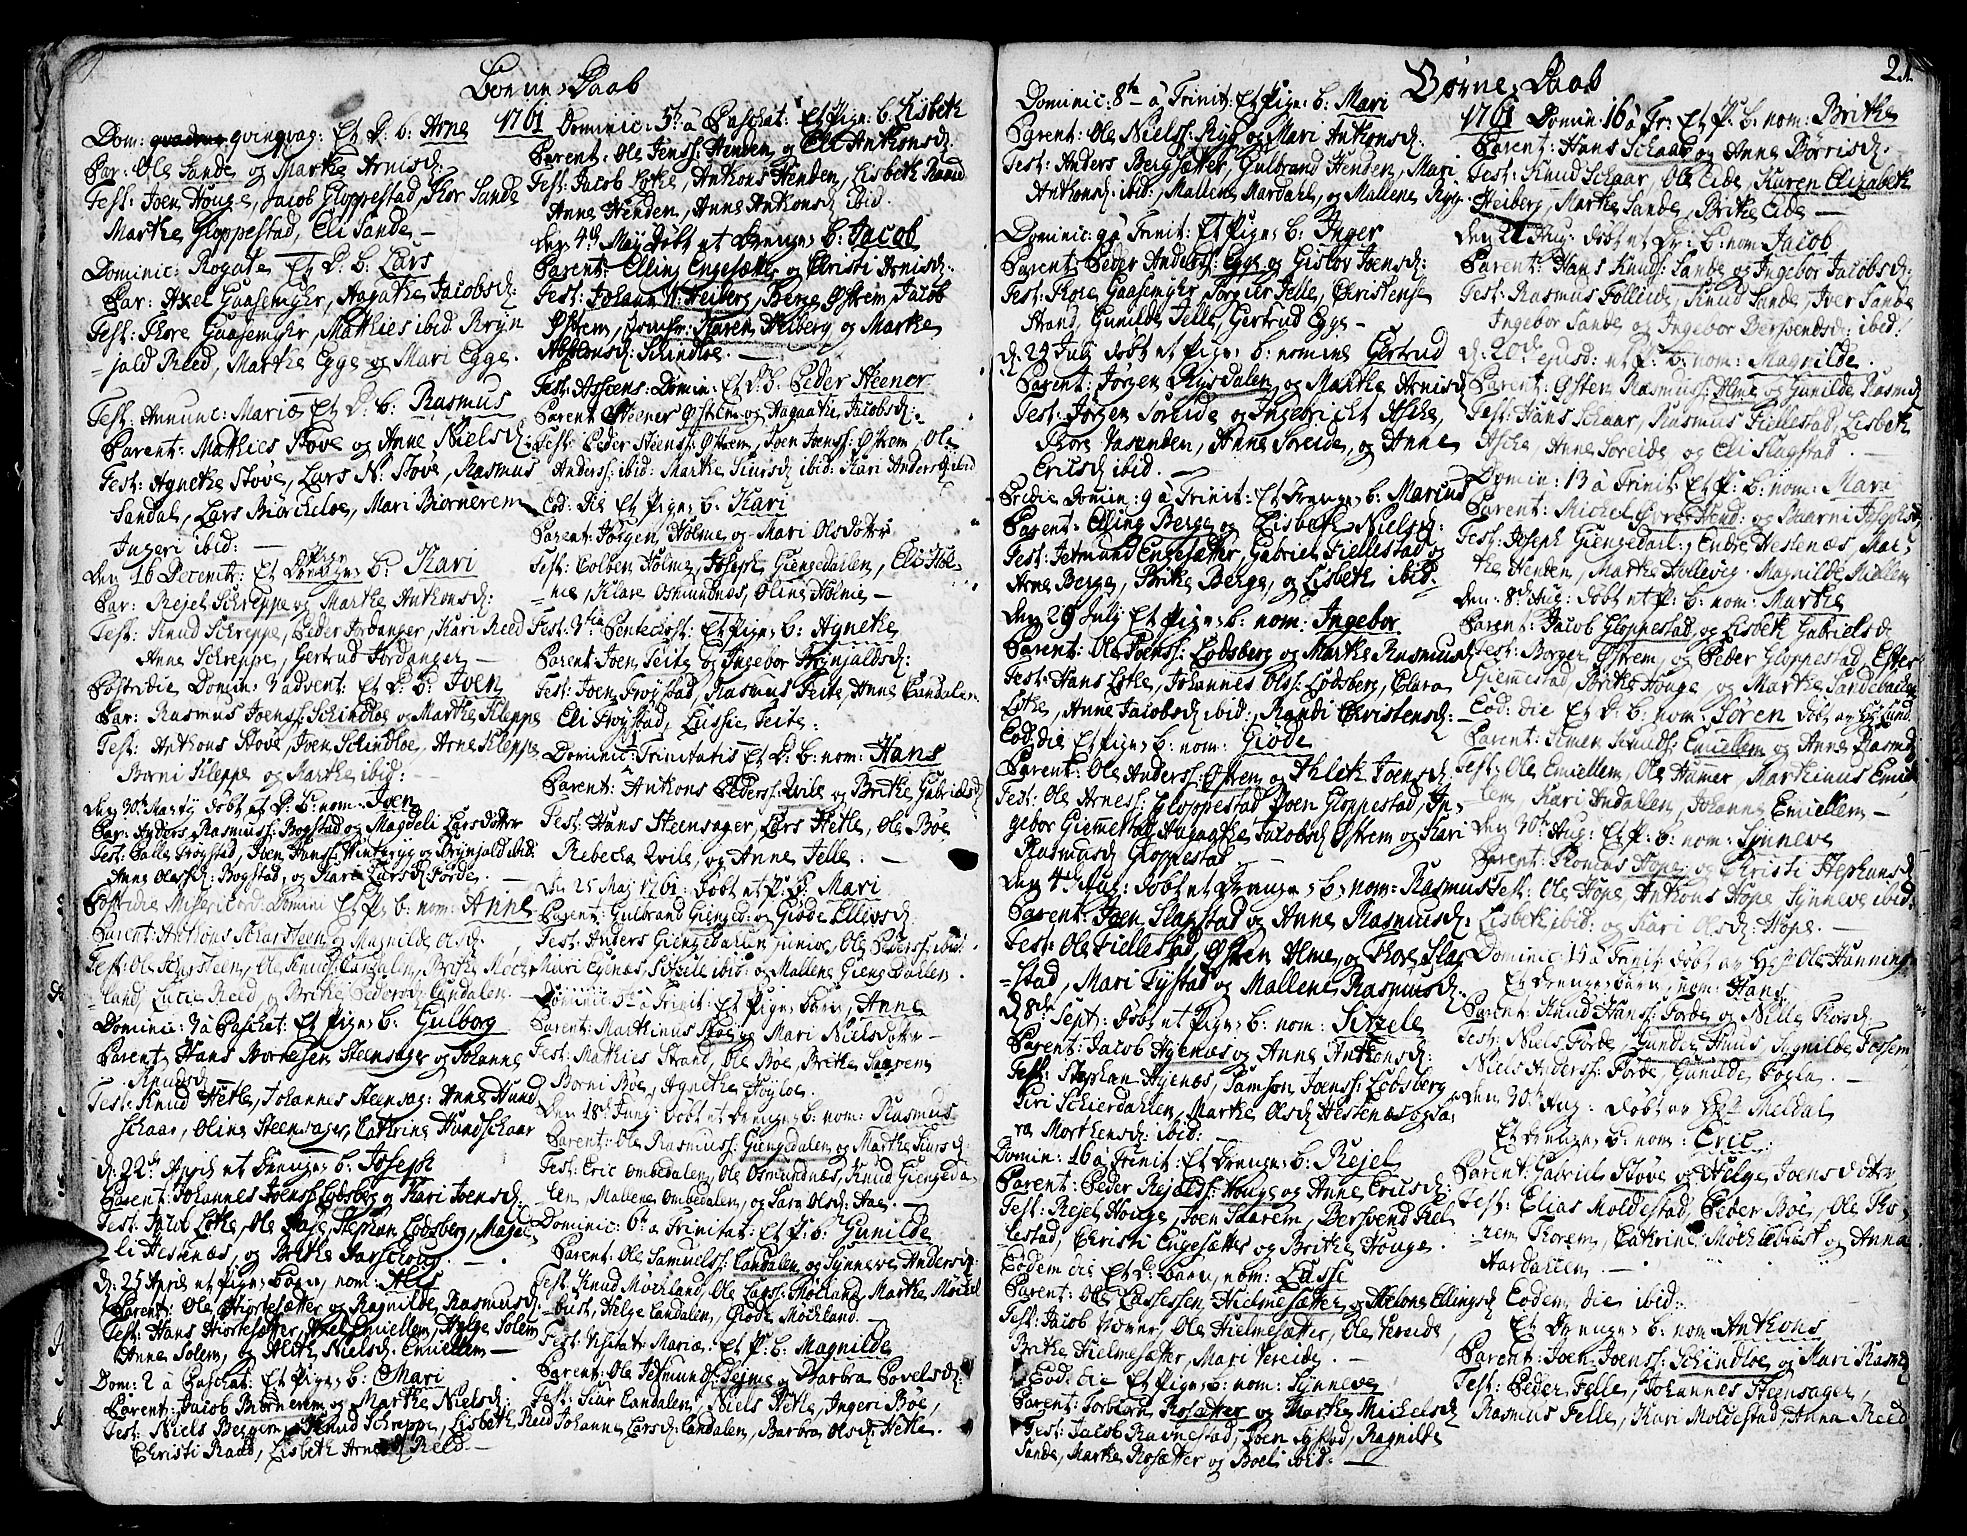 Børne Daab
Dom: qvinqvag: Et D: b: Arne
Par: Ole Sande og Marthe Arnisd:
Test: Joen Houge, Jacob Gloppestad, Thor Sande
Marthe Gloppestad, Eli Sande
Dominic: Rogate Et D: b: Lars
Par: Axel Gaasemyhr, Aagathe Jacobsd:
Test: Thore Gaasemyhr, Mathies ibid Bryn
jald Reed, Marthe Egge og Mari Egge.
Fest: Annunc: Mariæ Et D: b: Rasmus
Parent: Mathies Støve og Anne Nielsd:
Test: Agnethe Støve, Lars N: Støve, Rasmus
Sandal, Lars Biørcheloe, Mari Biørnerem
Ingeri ibid:
Den 16 Decemb: Et Pige b: Kari
Par: Rejel Schreppe og Marthe Anthonsd:
Test: Knud Schreppe, Peder Fordanger, Kari Reed
Anne Schreppe, Gertrud Fordanger
Postridie Domin: 3 advent: Et D: b: Joen
Par: Rasmus Joenss: Schindloe og Marthe Kleppe
Test: Anthons Støve, Joen Schindloe, Arne Kleppe
Børni Kleppe og Marthe ibid:
Den 30th Marty døbt et D: b: nom: Joen
Par: Anders Rasmuss: Bogstad og Magdeli Larsdotter
Test: Palle Frøystad, Joen Hanss: Winteryg og Brynjald ibid:
Anne Olesd: Bogstad, og Kari Larsd: Førde
Postridie Misericord: Domini Et P: b: nom: Anne
Parent: Anthons Schardsteen og Magnilde Olsd:
Test: Ole Knuds: Candalen, Brithe Moch
land, Lucie Reed, og Brithe Pedersd: Candalen.
Dominic: 3 a Paschat: Et Pige b: Gulborg
Parent: Hans Mortensen Steensager og Johanne
Knudsd:
Test: Knud Hetle, Johannes Steensag: Anne Hund
schaar, Oline Steensager, Cathrine Hundschaar
d: 22th April et Drenge b: Joseph
Parent: Johannes Joenss: Lodsberg og Kari Joensd:
Test: Jacob Lothe, Ole Stephan Lodsberg, Magde
li Hestenæs, og Brithe
d: 25 April et Pige Barn, nom: Alis
Parent: Ole Hiortesætter og Ragnilde Rasmusd:
Test: Hans Hiortesætter, Axel Emiellem, Helge Solem
Anne Solem, og Aleth Nielsd: Emiellem
Dom: 2 a Paschat: Et Pige b: Mari
Parent: Jacob Biørnerem og Marthe Nielsd:
Test: Niels Bergem, Knud Schreppe, Lisbeth Reed
Christi Raad, Lisbeth Arnesd: Reed
1761 Dominic: 5th a Paschat: Et Pige b: Lisbeth
Parent: Ole Jenss: Henden og Eli Anthonsd:
Test: Jacob Lothe, Anthons Henden, Lisbeth
Anne Henden, Anne Anthonsd: ibid:
Den 4th May døbt et Drenge b: Jacob
Parent: Elling Engesætter og Christi Arnisd:
Test: Johan N: Heiberg, Berge Østrem, Jacob
Østrem, Jomfr: Karen Heiberg og Marthe
Schindloe.
Fest: Ascens: Domin: Et D: b: Peder Steener
Parent: Steener Østrem og Aagaathe Jacobsd:
Test: Peder Steenss: Østrem, Joen Joenss: Østrem, Ole
Anderss: ibid: Marthe Siursd: ibid: Kari Andersd: ibid
Eod: die Et Pige b: Kari
Parent: Jørgen Holme og Mari Olsdotter
Test: Colben Holme, Joseph Giengedalen, Eli Hol-
me, Klare Osmundnæs, Oline Holme
Fest: 3tia Pentecost: Et Pige b: Agnethe
Parent: Joen Feite og Ingebor Brynjaldsd:
Test: Joen Frøystad, Rasmus Feite, Anne Candalen
Eli Frøystad, Lussie Feite.
Dominic: Trinitatis Et D: b: nom: Hans
Parent: Anthons Pederss: Qvile og Brithe Gabrielsd
Test: Hans Steensager, Lars Hetle, Ole Bøe
Rebecha Qvile, og Anne Felle.
Den 25 Maj 1761: døbt et P: b: Mari
Parent: Gulbrand Gienged: og Giøde Ellevsd:
Test: Anders Giengedalen junior, Ole Pederss: ibid:
Mari Eynæs, Sitzele ibid: og Mallene Giengdallen.
Dominic: 3tia a Trinit: Et Pige Barn, Anne
Parent: Marthinus og Mari Nielsdotter
Test: Mathies Strand, Ole Bøe, Brithe Saarem
Børni Bøe, Agnethe Føyloe
Den 18th Junj: døbt et Drenge b: nom: Rasmus
Parent: Ole Rasmuss: Giengedalen og Marthe Siursd:
Test: Eric Ombedalen, Ole Osmundnæs, Knud Giengeda
len, Mallene Ombedalen, og Sara Olsd: Aae.
Dominic: 6ta a Trinitat: Et P: b: Gunilde
Parent: Ole Samuelss: Candalen og Synneve Andersd:
Test: Knud Mochland, Ole Larss: Møcland, Marthe Møckel
bust, Helge Candalen, Giøde Mochland.
Fest: Visitat: Mariæ: Et P: b: Magnilde
Parent: Ole Jetmunds: Seime og Barbra Povelsd:
Test: Siur Candalen, Niels Hetle, Ingeri Bøe,
Johanne Larsd: Candalen, Barbra Olsd: Hetle.
21
Børne Daab
Dominic: 8th a Trinit: Et Pige b: Mari
Parent: Ole Nielss: Ryg og Mari Anthonsd:
Test: Anders Bergsætter, Gulbrand Henden, Mari
Anthonsd: ibid, Mallene Mardahl, og Mallene Ryg
Dominic: 9 a Trinit: Et Pige b: Inger
Parent: Peder Anderss: Egge og Gislov Joensd:
Test: Thore Gaasemyhr, Torgier Felle, Christense
Strand, Gunilde Felle, Gertrud Egge
d: 24 July døbt et Pige b: nomine Gertrud
Parent: Jørgen Rysdalen og Marthe Arnisd:
Test: Jørgen Soreide og Ingebricht Asche,
Thore Vasenden, Anne Soreide, og Anne
Ericsd ibid.
Predie Domin: 9 a Trinit: Et Drenge b: Marius
Parent: Elling Berge og Lisbeth Nielsd:
Test: Jetmund Engesætter, Gabriel Fiellestad og
Arne Berge, Brithe Berge, og Lisbeth ibid:
Den 29 July Et Pige b: nom: Ingebor
Parent: Ole Joenss: Lodsberg og Marthe Rasmusd
Test: Hans Lothe, Johannes Olss: Lodsberg, Clara
Lothe, Anne Jacobsd ibid:, Randi Christensd:
Eod: die Et Pige b: nom: Giøde
Parent: Ole Anderss: Østrem og Thleth Joensd:
Test: Ole Arness: Gloppestad Joen Gloppestad, In-
gebor Giemestad, Aagathe Jacobsd Østrem og Kari
Rasmusd Gloppestad
Den 4th Aug: døbt et Drenge b: nom: Rasmus
Parent: Joen Slagstad og Anne Rasmusd:
Test: Ole Fiellestad, Østen Alme, og Thore Slag
stad, Mari Tystad og Mallene Rasmusd:
d 8th Sept: døbt et Pige b: nom: Sitzele
Parent: Jacob Hyenæs og Anne Anthonsd:
Test: Stephan Hyenæs, Samson Joenss: Lodsberg
Siri Schierdahlen, Marthe Olsd Hestenæs og Sa-
ra Morthensd: ibid:
Domin: 16 a Trinit: Et Drenge b: Rejel
Parent: Peder Rejelss: Houge og Anne Ericsd:
Test: Rejel Houge, Joen Saarem, Bersvend Fiel
lestad, Christi Engesætter og Brithe Houge.
Eodem die Et D: barn, nom: Lasse
Parent: Ole Lassessen Hielmesætter og Helene Ellingsd
Test: JacobVærer, Ole Hielmesætter, Ole Vereide,
Brithe Hielmesætter, Mari Vereide.
Eod: die Et Pige b: nom: Synneve
Parent: Torbiørn Rosætter og Marthe Michelsd
Test: Jacob Ravnestad, Joen Tystad, Ragnilde
Sande, Marthe Rosætter og Boel ibid:
1761 Domin: 16 a Tr: Et P: b: nom: Brithe
Parent: Hans Schaar og Anne Børrisd:
Test: Knud Schaar, Ole Eide, Karen Elizabeth
Heiberg, Marthe Sande, Brithe Eide
Den 21 Aug: døbt et Dr: b: nom Jacob
Parent: Hans Knuds: Sande og Ingebor Jacobsd:
Test: Rasmus Folleide, Knud Sande, Iver Sande
Ingebor Sande og Ingebor Bersvendsd: ibid:
d: 20de ejusd: et P: b: nom: Magnilde.
Parent: Østen Rasmuss: Alme og Gunilde Rasmsd
Test: Hans Schaar, Rasmus Fiellestad, Lisbeth
Asche, Anne Soreide, og Eli Slagstad.
Domin: 13 a Trinit: Et P: b: nom: Mari
Parent: Michel Øvre Hend: og Baarni Josephsd
Test: Joseph Giengedal:, Endre Hestenæs, Mar-
the Henden, Marthe Hollevig, Magnilde Miellem
Den: 8th Aug: døbt et P: b: nom: Marthe
Parent: Jacob Gloppestad og Lisbeth Gabrielsd
Test: Borger Østrem, og Peder Gloppestad, Ester
Giemestad Brithe Houge, og Marthe Sandebacken
Eod: die Et D: b: nom: Søren døbt av Hr: Lund
Parent: Simen Knuds: Emiellem og Anne Rasmd
Test: Ole Emiellem, Ole Hamer, Marthinus Emiel
lem, Kari Andahlen, Johanne Emiellem
Den 30th Aug: Et P: b: nom: Synneve
Parent: Thomas Hope og Christi Stephansd
Test: Ole Hope Anthons Hope, Synneve ibid:
Lisbeth ibid: og Kari Olsd: Hope.
Dominic 14 a Trinit døbt av Hr: Ole Hanning
Et Drenge barn, nom: Hans
Parent: Knud Hanss: Førde og Nille Thorsd:
Test: Niels Førde, Gunder Huus, Magnilde Fossem
Niels Anderss: Førde, Gunilde Fogla.
Den 30th Aug: døbt av Hr: Meldal
Et Drenge b: nom: Eric:
Parent: Gabriel Støve og Helge Joensdotter
Test: Elias Moldestad, Peder Bøe, Ole Tho-
rem Thorem, Cathrine Möchlebust og Anna
Aardallen.
Eodem die ibid:
Et Drenge b: nom: Anthons
Parent: Joen Joenss: Schindloe og Mari Rasmd
Test: Peder Felle, Johannes Steensager,
Rasmus Felle, Kari Moldestad, Anna Reed